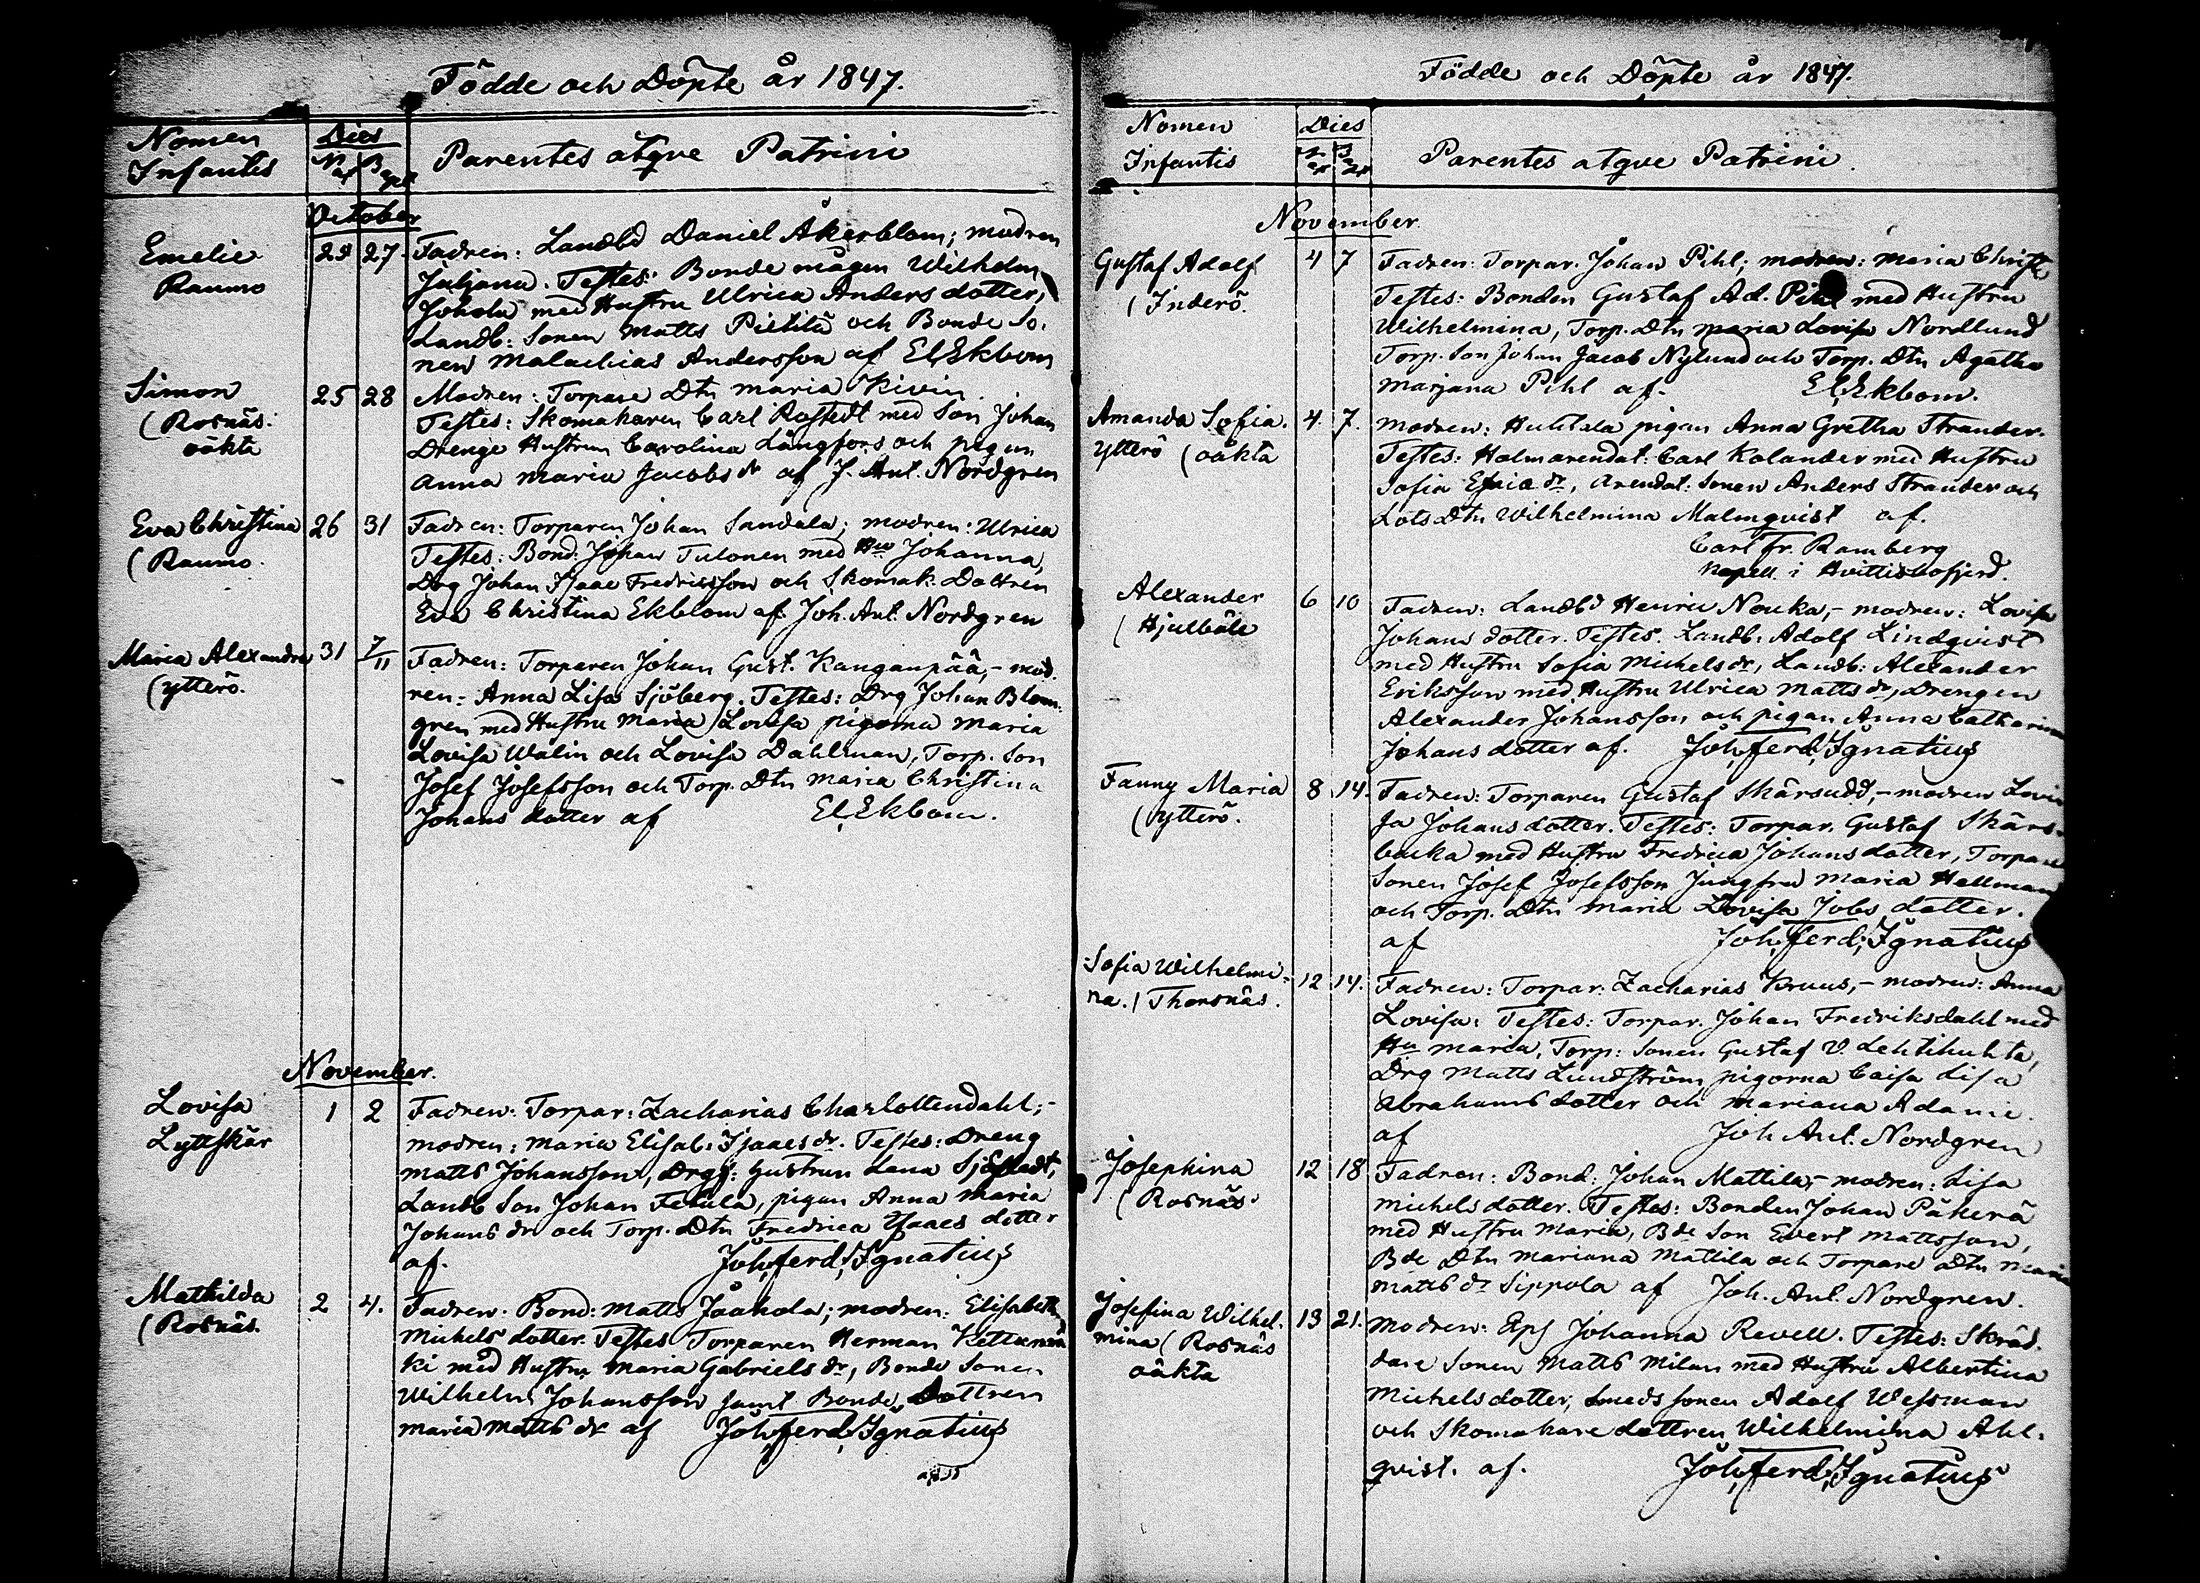 Födde och Döpte år 1847.
Nomen
Infantis
Dies
Nat
Bapt
Parentes atqve Patrini
October
Emelie
Raumo
24 27. Fadren: Landbd Daniel Åkerblom; modren
Juliana. Testes: Bonde mågen Wilhelm
Johola med Hustru Ulrica Anders dotter,
Landb: Sonen Matts Pietilä och Bonde So-
nen Malachias Andersson af El. Ekbom
Simon
(Rosnäs.
oäkta
25 28 Modren: Torpare Dtn Maria Kivin
Testes: Skomakaren Carl Rostedt med Son Johan
Drenge Hustrun Carolina Långfors och pigan
Anna Maria Jacobs dr af J. Ant. Nordgren
Eva Christina
(Raumo.
26 31 Fadren: Torparen Johan Sandala; modren: Ulrica
Testes: Bond: Johan Tulonen med Hu Johanna,
Drg Johan Isaac Fredriksson och Skomak. Dottren
Eva Christina Ekblom af Joh. Ant. Nordgren
Maria Alexandra
(ytterö.
31 7/11 Fadren: Torparen Johan Gust. Kanganpää,- mod-
ren: Anna Lisa Sjöberg. Testes: Drg Johan Blom-
gren med Hustru Maria Lovisa pigorna Maria
Lovisa Walin och Lovisa Dahlman, Torp. Son
Josef Josefsson och Torp. Dtn Maria Christina
Johans dotter af El. Ekbom.
November.
Lovisa
Lyttskär
1 2 Fadren: Torpar: Zacharias Charlottendahl;-
modren: Maria Elisab: Isaacs dr. Testes: Dreng
Matts Johansson, Drgs: hustrun Lena Sjöstedt,
Landb Son Johan Fetula, pigan Anna Maria
Johans dr och Torp. Dtn Fredrica Isaacs dotter
af. Joh. Ferd. Ignatius
Mathilda
(Rosnäs.
2 4. Fadren: Bond: Matts Jaakola; modren: Elisabeth
Michels dotter. Testes Torparen Herman Kettumä
ki med Hustru Maria Gabriels dr, Bonde Sonen
Wilhelm Johansson samt Bonde Dottren
Maria Matts dr af Joh. Ferd. Ignatius
Födde och Döpte år 1847.
Nomen
Infantis
Dies
Parentes atqve Patrini.
November
Gustaf Adolf
(Inderö.
4 7 Fadren: Torpar. Johan Pihl; modren: Maria Christ
Testes: Bonden Gustaf Ad. Pihl med Hustru
Wilhelmina, Torp. Dtn Maria Lovisa Nordlund
Torp. Son Johan Jacob Nylund och Torp. Dtn Agatha
Marjana Pihl af. El. Ekbom.
Amanda Sofia.
Ytterö (oäkta
4. 7. Modren: Huhtala pigan Anna Gretha Strander.
Testes: Holmarendat: Carl Kolander med Hustru
Sofia Esaia dr, Arendat: Sonen Anders Strander och
Lots Dtn Wilhelmina Malmqvist af.
Carl Fr. Ramberg
Kapell. i Hvittisbofjerd.
Alexander
(Hjulböle
6 10 Fadren: Landbd Henric Nouka,- modren: Lovisa
Johans dotter. Testes. Landb: Adolf Lindqvist
med Hustru Sofia Michels dr, Landb: Alexander
Eriksson med Hustru Ulrica Matts dr, Drengen
Alexander Johansson och pigan Anna Catharina
Johans dotter af. Joh. Ferd. Ignatius
Fanny Maria
(ytterö.
8. 14. Fadren: Torparen Gustaf Skärsudd,- modren Lovi
sa Johans dotter. Testes: Torpar. Gustaf Skärs-
backa med Hustru Fredrica Johans dotter, Torpare
Sonen Josef Josefsson Jungfru Maria Hellman
och Torp. Dtn Maria Lovisa Jobs dotter.
af Joh. Ferd. Ignatius
Sofia Wilhelmi-
na. (Thorsnäs.
12 14. Fadren: Torpar: Zacharias Kruus,- modren: Anna
Lovisa: Testes: Torpar. Johan Fredriksdahl med
Hu Maria, Torp: Sonen Gustaf V. Lehtihuhta,
Drg Matts Lundström pigorna Caisa Lisa
Abrahams dotter och Mariana Adami.
af Joh Ant. Nordgren
Josephina
(Rosnäs.
12 18 Fadren: Bond: Johan Mattila,- modren: Lisa
Michels dotter. Testes: Bonden Johan Päkerä
med Hustru Maria, Bde Son Evert Mattsson,
Bde Dtn Mariana Mattila och Torpare Dtn Maria
Matts dr Sippola af Joh. Ant. Nordgren.
Josefina Wilhel-
mina (Rosnäs
oäkta
13 21. Modren: Johanna Revell. Testes: Skräd-
dare Sonen Matts Milan med Hustru Albertina
Michels dotter, Smeds sonen Adolf Wessman
och Skomakare dottren Wilhelmina Ahl-
qvist. af. Joh. Ferd. Ignatius